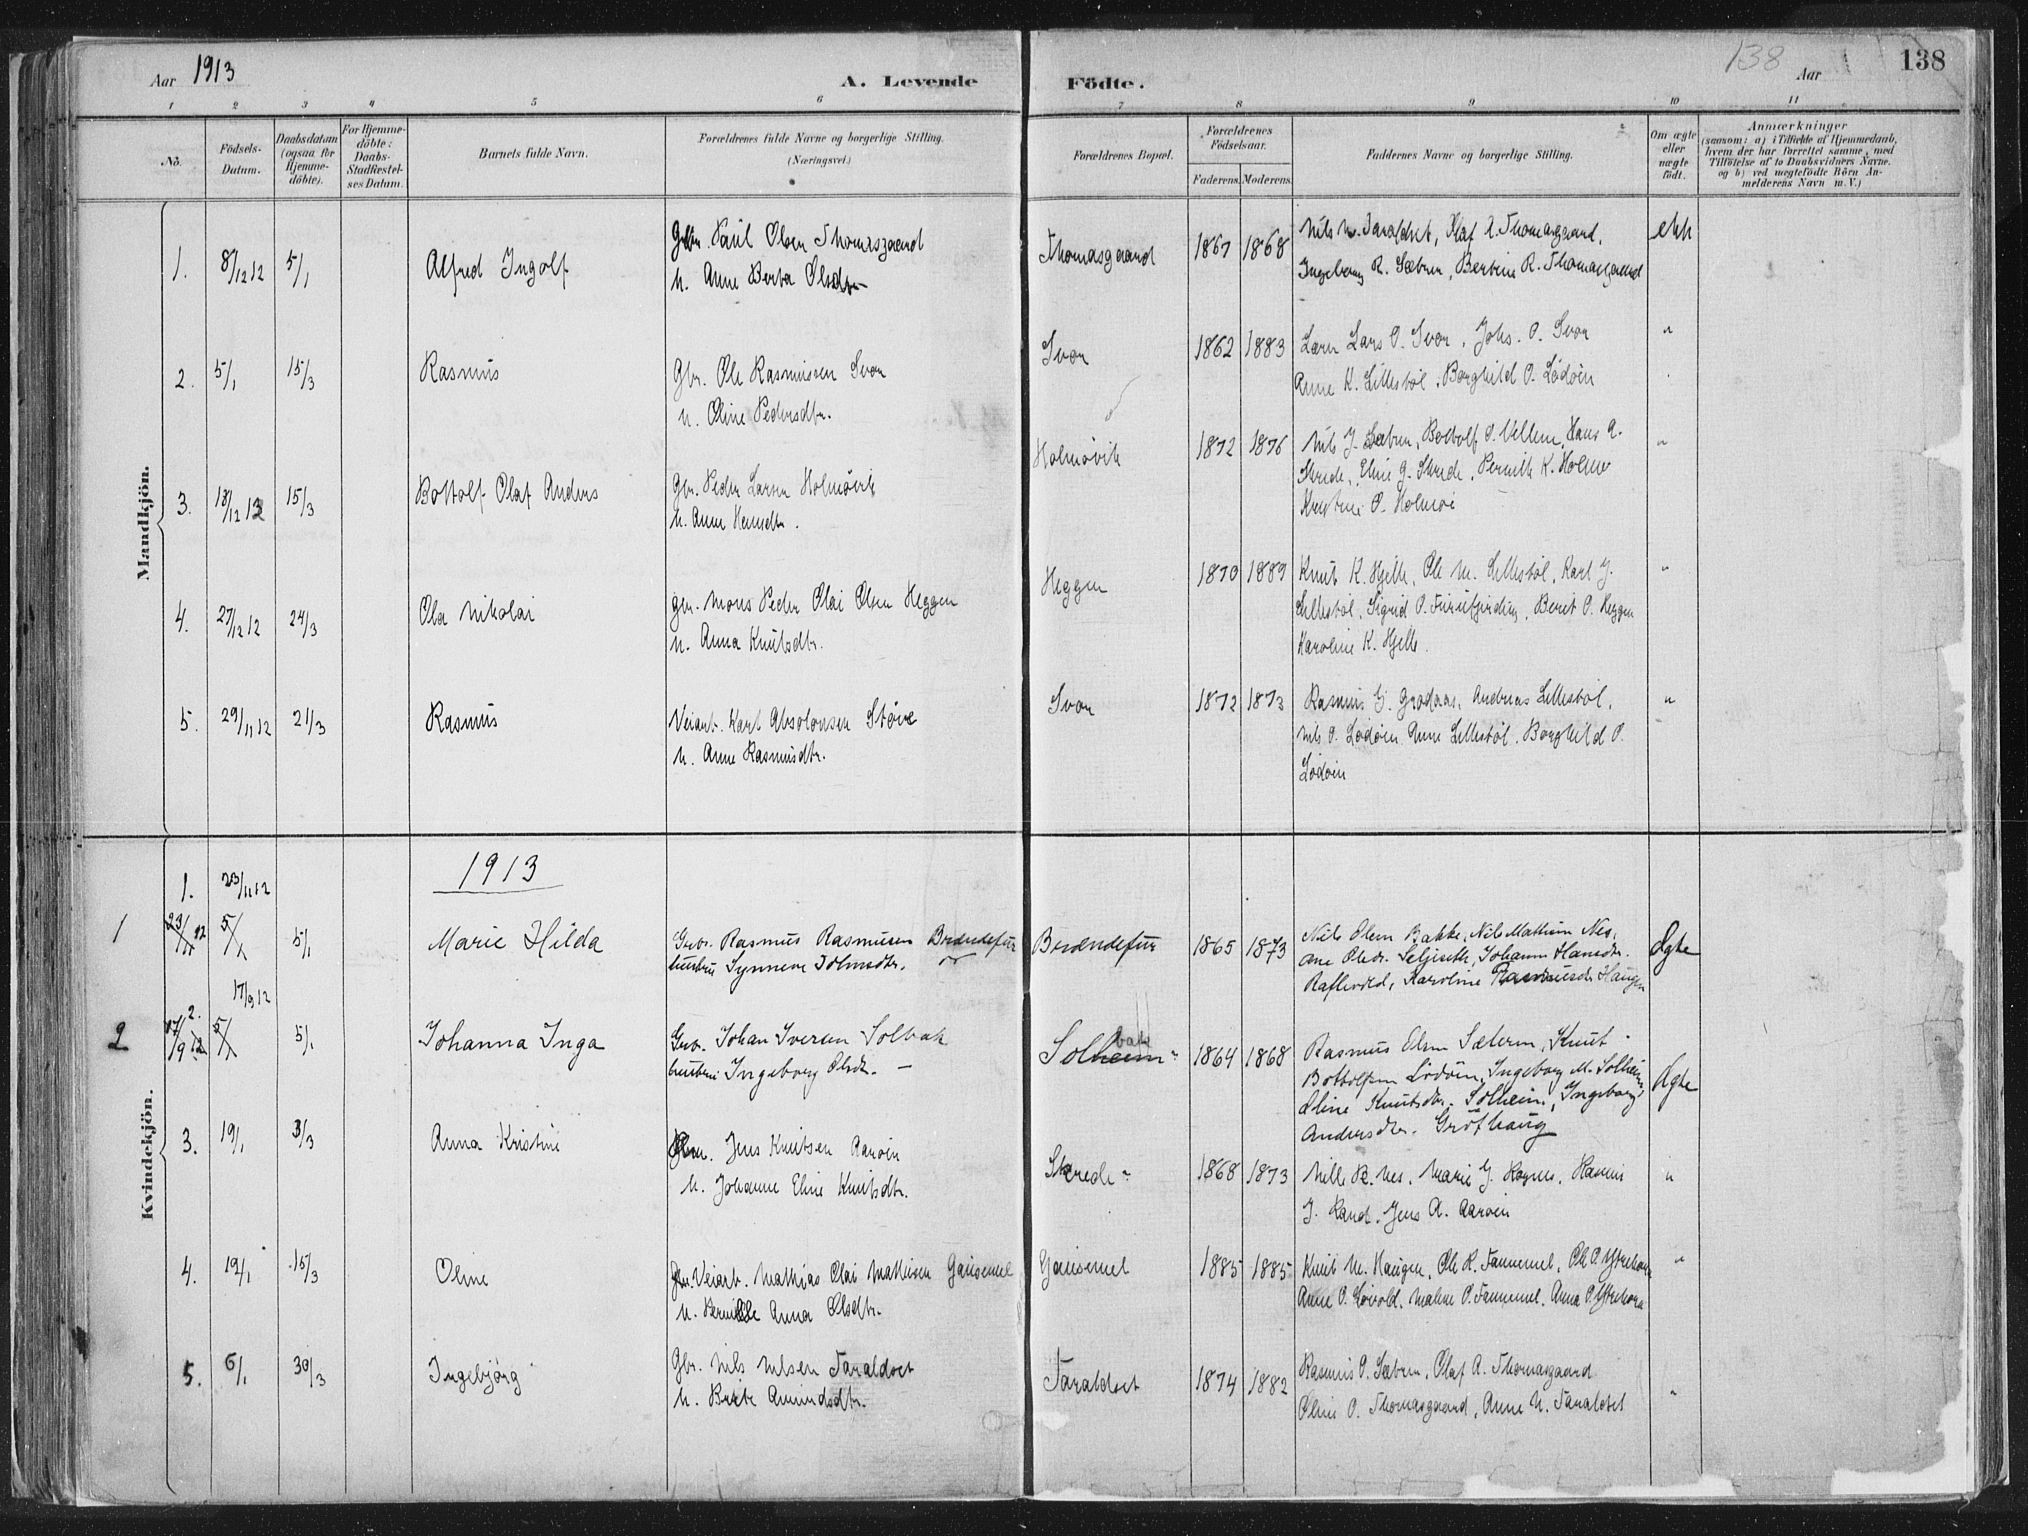 Aar 1913
A. Levende
Födte.
138
Aar
138
1 2 3 4 5 6 7 8 9 10 11
No.
Födsels-
Datum.
Daabsdatum
(ogsaa for
Hjemme-
döbte).
For Hjemme-
döbte:
Daabs-
Stadfæstel-
ses Datum.
Barnets fulde Navn.
Forældrenes fulde Navne og borgerlige Stilling.
(Næringsvei.)
Forældrenes Bopæl.
Forældrenes
Födselsaar.
Faderens. Moderens.
Faddernes Navne og borgerlige Stilling.
Om ægte
eller
uægte
födt.
Anmærkninger
(saasom: a) i Tilfælde af Hjemmedaab,
hvem der har forrettet samme, med
Tilföielse af to Daabsvidners Navne.
og b) ved uægtefödte Börn An-
melderens Navn m. V.)
Mandkjön.
1. 8/12 12 5/1 Alfred Ingolf
Gbr. Paul Olsen Thomasgaard
h. Anne Berta Olsdtr
Thomasgaard 1867 1868
Nils N. Taraldset, Olaf R. Thomasgaard,
Ingeborg R. Sæbøen, Bertine R. Thomasgaard
ekte
2. 5/1 15/3 Rasmus
Gbr. Ole Rasmussen Svor
h. Oline Pedersdtr.
Svor 1862 1883
Lærer Lars O. Svor, Johs. O. Svor
Anne K. Lillestøl, Borghild O. Lødøen
"
3. 13/12 12 15/3 Bottolf Olaf Anders
Gbr. Peder Larsen Holmøvik
h. Anne Hansdtr.
Holmøvik 1872 1876
Nils J. Sæbøen, Bottolf O. Vellem, Hans A.
Skrede, Eline G. Skrede, Pernille K. Holmø
Kristine O. Holmøi
"
4. 27/12 12 24/3 Ola Nikolai
Gbr. Mons Peder Olai Olsen Heggen
h. Anna Knutsdtr.
Heggen 1870 1889
Knut K. Hjelle, Ole M. Lillestøl, Karl J.
Lillestøl, Sigrid O. , Beret O. Heggen
Karoline K. Hjelle.
"
5. 29/11 12 21/3 Rasmus
Veiarb. Karl Absolonsen Støve
h. Anne Rasmusdtr.
Svor 1872 1873
Rasmus G. Grodaas, Andreas Lillestøl,
Nils O. Lødøen, Anne Lillestøl, Borghild O.
Lødøen
"
Kvindekjön.
1913
1. 23/11 12
1 23/11 12 5/1 5/1 Marie Hilda
Grbr. Rasmus Rasmusen Brændefur
hustru Synneve Johnsdtr.
Brændefur 1865 1873
Nils Olsen Bakke, Nils Mathisen Nes,
Ane Olsdr. Seljesæth, Johanne Hansdr.
Raftevold, Karoline Rasmusdr. Haugen
Ægte
17/9 12
2 17/9 12 2. 5/1 5/1 Johanna Inga
Grbr. Johan Iversen Solbak
hustru Ingeborg Olsdr. -
Solheim bak " 1864 1868
Rasmus Elen Sætern, Knut
Bottolfsen Lödöen, Ingeborg M. Solheim,
Oline Knutsdtr. Solheim, Ingeborg
Andersdtr. Gröthaug
Ægte
3. 19/1 3/3 Anna Kristine
Gbr. Jens Knutsen Aarøen
h. Johanne Eline Knutsdtr.
Skrede " 1868 1873
Nille R. Nes, Marie J. Hognes, Rasmus
J. Rand, Jens A. Aarøen
"
4. 19/1 15/3 Oline
Veiarb. Mathias Olai Mathisen Gausemel
h. Pernille Anna Olsdtr.
Gausemel 1885 1885
Knut M. Haugen, Ole R. Tannemel, Ole O. Ytrehorn
Anne O. Løvold, Malene O. Tannemel, Anna O. Ytrehorn
"
5. 6/1 30/3 Ingebjørg
Gbr. Nils Nilsen Taraldset
h. Berte Amundsdtr.
Taraldset 1874 1882
Rasmus O. Sæbøen, Olaf R. Thomasgaard
Oline O. Thomasgaard, Anne N. Taraldset
"